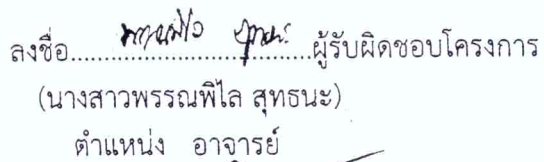 ลงชื่อ....................................ผู้รับผิดชอบโครงการ
(นางสาวพรรณพิไล สุทธนะ)
ตำแหน่ง อาจารย์